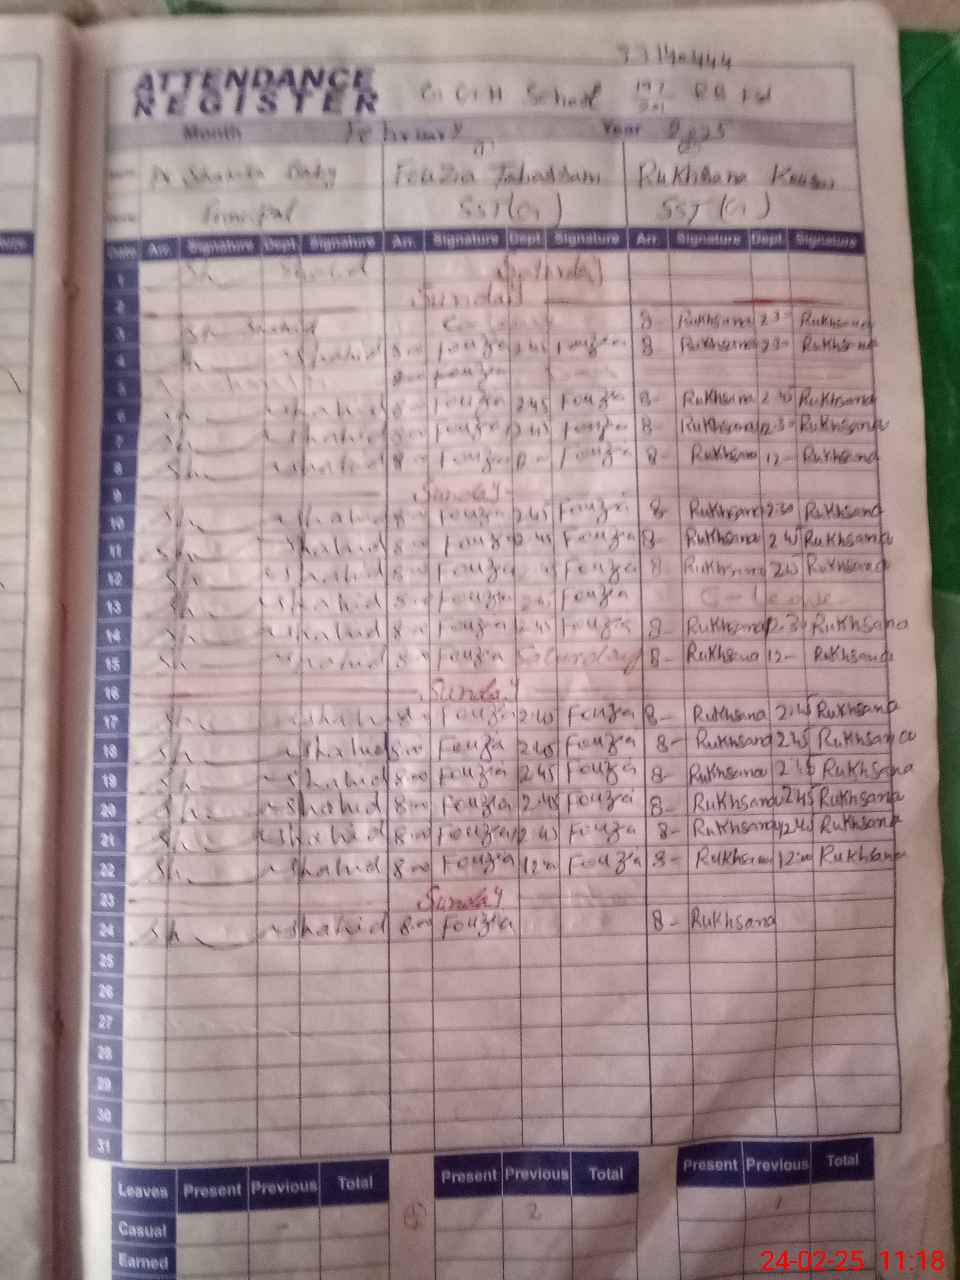 33140444
ATTENDANCE REGISTER G G H School 197 RB Fd
Month February Year 2025
Shahida Fouzia Tabassam Rukhsana Kousar
Principal SST (G) SST (G)
Date Arr. Signature Dept. Signature Arr. Signature Dept. Signature Arr. Signature Dept. Signature
1 Sh Shahid Saturday
2 Sunday
3 Sh Shahid 8- Rukhsana 2 30 Rukhsana
4 Sh Shahid 8:00 Fouzia 2 45 Fouzia 8 Rukhsana 2 30 Rukhsana
5 8:00 Fouzia
6 Sh Shahid 8:00 Fouzia 2 45 Fouzia 8- Rukhsana 2 30 Rukhsana
7 Sh Shahid 8:00 Fouzia 2 45 Fouzia 8- Rukhsana 2:30 Rukhsana
8 Sh Shahid 8:00 Fouzia Fouzia 8- Rukhsana 12- Rukhsana
9 Sunday
10 Sh Shahid 8:00 Fouzia 2 45 Fouzia 8- Rukhsana 2:30 Rukhsana
11 Sh Shahid 8:00 Fouzia 2 45 Fouzia 8- Rukhsana 2 45 Rukhsana
12 Sh Shahid 8:00 Fouzia 45 Fouzia 8- Rukhsana Rukhsana
13 Sh Shahid 8:00 Fouzia Fouzia C-leave
14 Sh Shahid 8:00 Fouzia 2 45 Fouzia 8- Rukhsana 2:30 Rukhsana
15 Sh Shahid 8:00 Fouzia Saturday 8- Rukhsana 12- Rukhsana
16 Sunday
17 Sh Shahid 8:00 Fouzia 2:45 Fouzia 8- Rukhsana 2:45 Rukhsana
18 Sh Shahid 8:00 Fouzia 2:45 Fouzia 8- Rukhsana 2 45 Rukhsana
19 Sh Shahid 8:00 Fouzia 2 45 Fouzia 8- Rukhsana 2:45 Rukhsana
20 Sh Shahid 8:00 Fouzia 2:45 Fouzia 8- Rukhsana 2 45 Rukhsana
21 Sh Shahid 8:00 Fouzia 2:45 Fouzia 8- Rukhsana 2 45 Rukhsana
22 Sh Shahid 8:00 Fouzia 12:00 Fouzia 8- Rukhsana 12:00 Rukhsana
23 Sunday
24 Sh Shahid 8:00 Fouzia 8- Rukhsana
25
26
27
28
29
30
31
Leaves Present Previous Total Present Previous Total Present Previous Total
Casual - 2 1
Earned
24-02-25 11:18